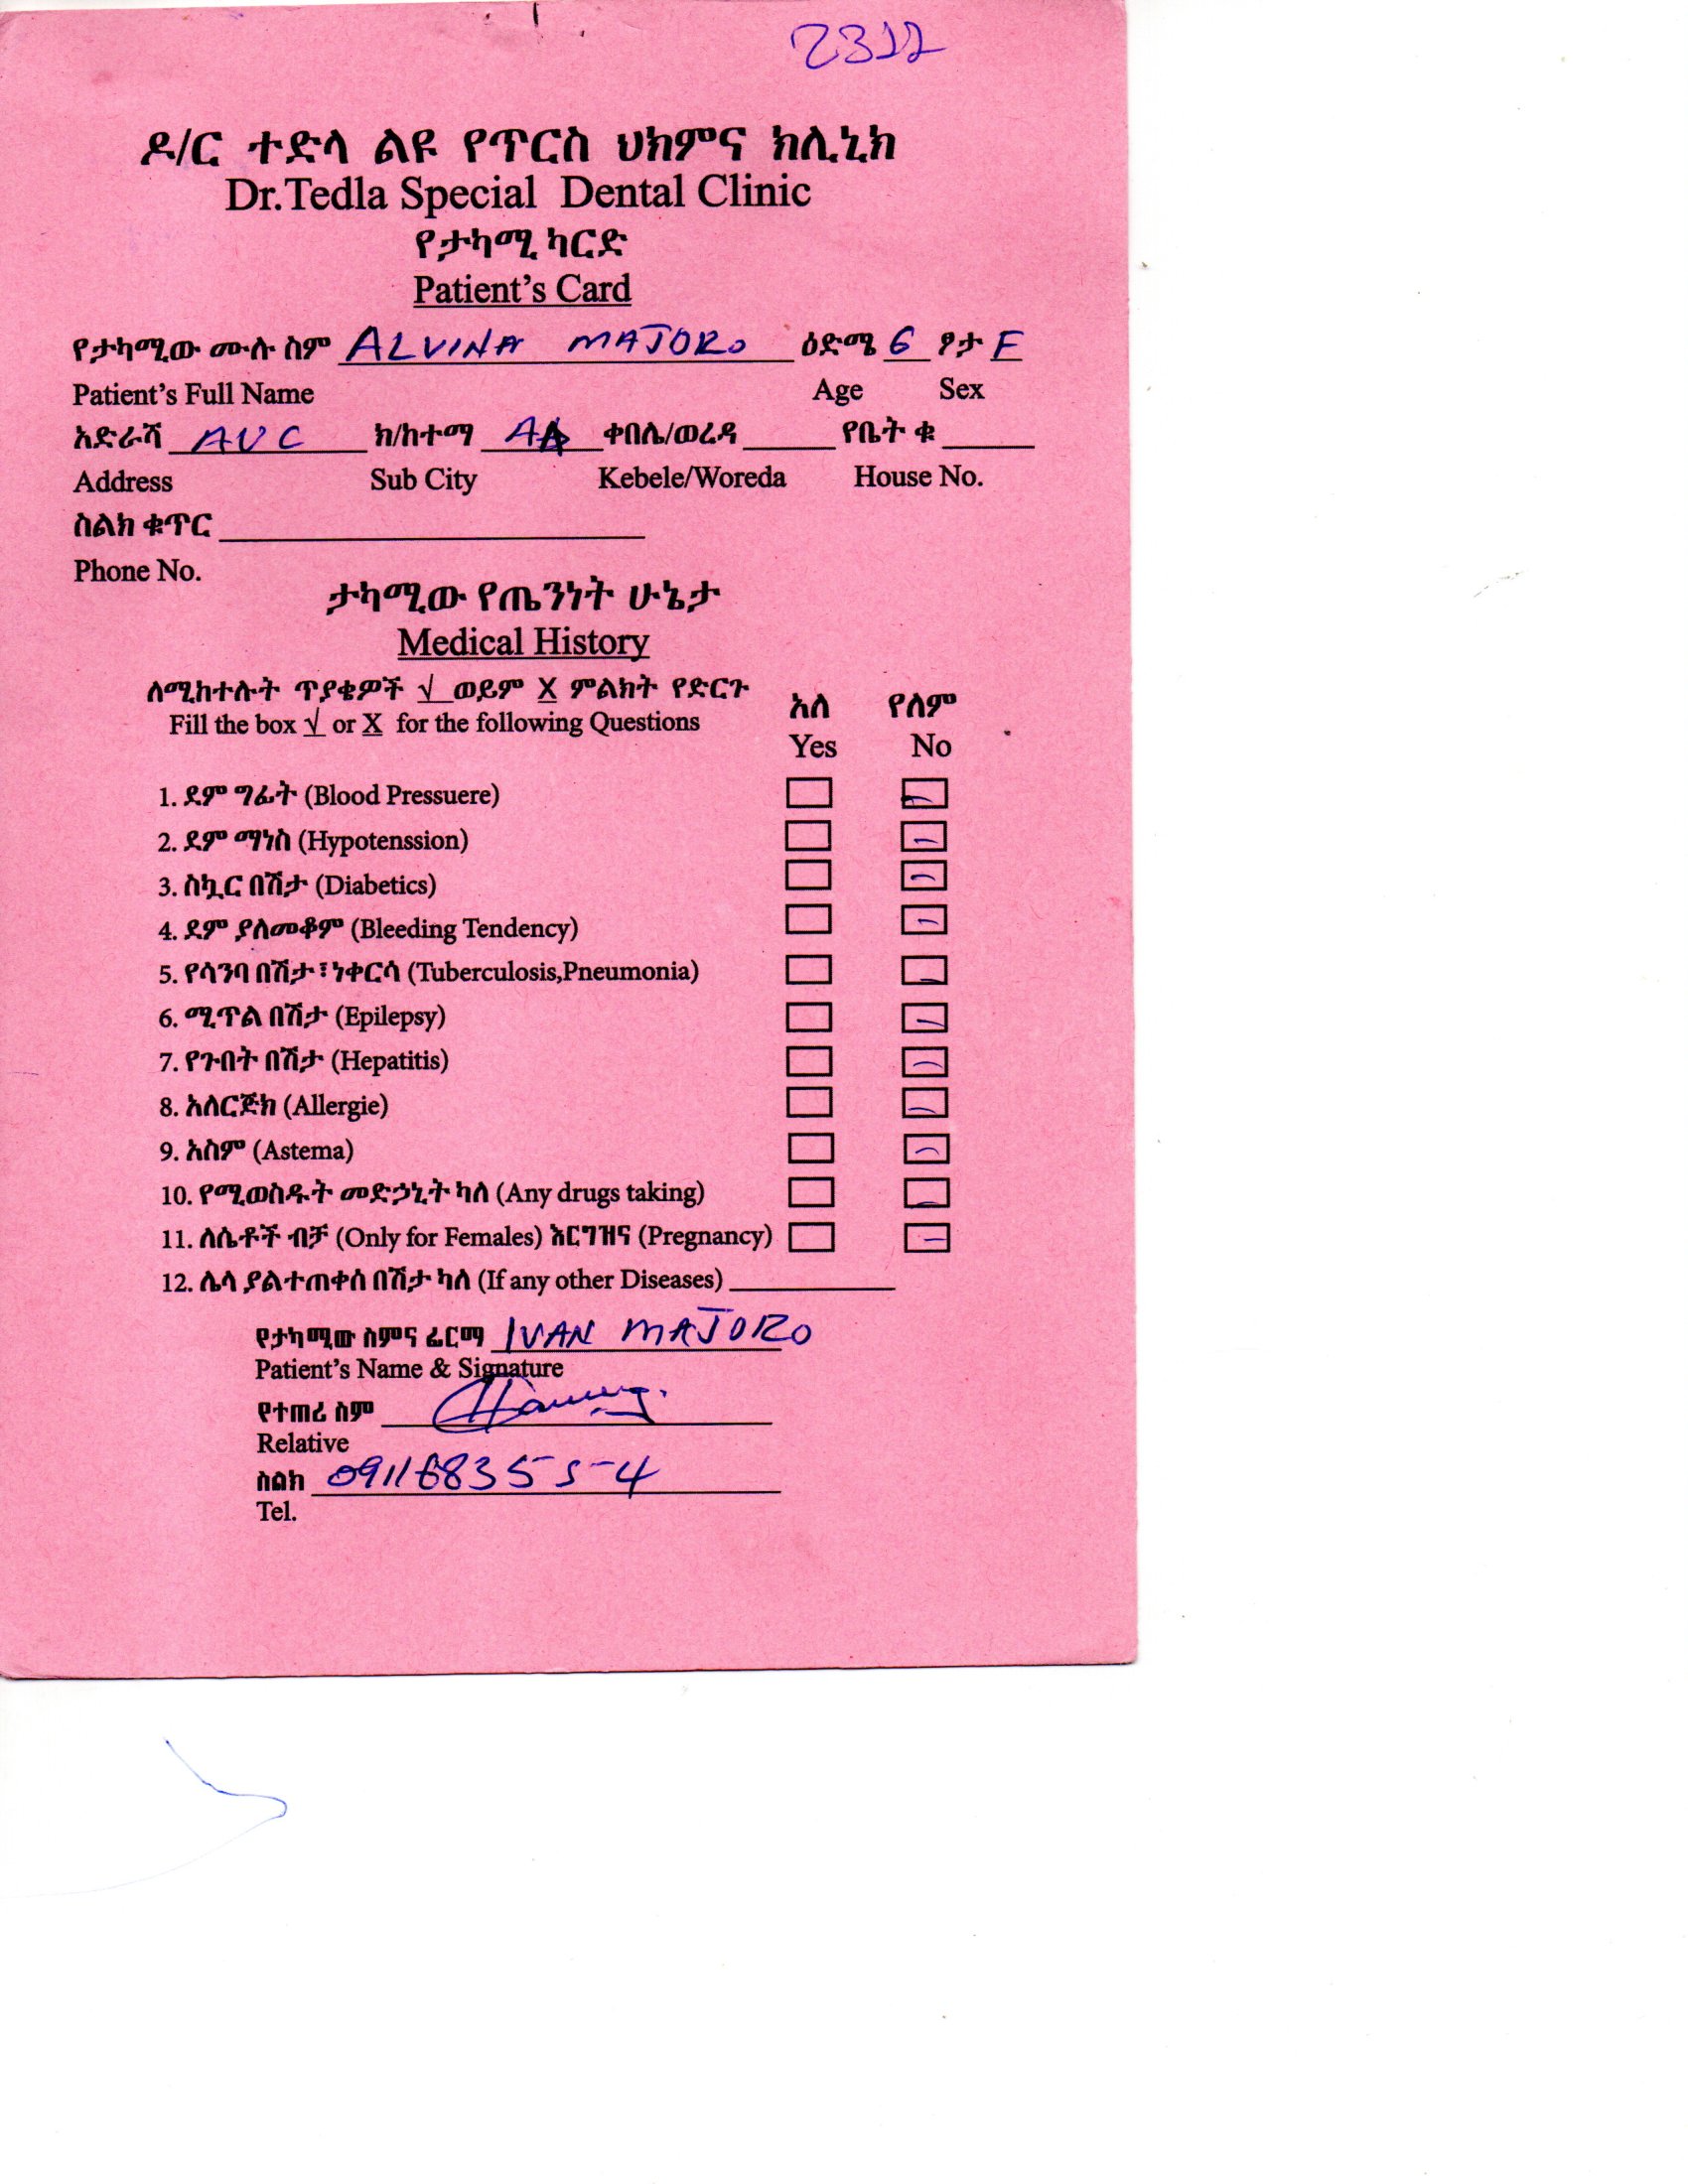 2322
ዶ/ር ተድላ ልዩ የጥርስ ህክምና ክሊኒክ
Dr.Tedla Special Dental Clinic
የታካሚ ካርድ
Patient's Card
የታካሚው ሙሉ ስም ALVINA MAJORO ዕድሜ 6 ፆታ F
Patient's Full Name Age Sex
አድራሻ AUC ክ/ከተማ AA ቀበሌ/ወረዳ የቤት ቁ
Address Sub City Kebele/Woreda House No.
ስልክ ቁጥር
Phone No.
ታካሚው የጤንነት ሁኔታ
Medical History
ለሚከተሉት ጥያቄዎች √ ወይም X ምልክት የድርጉ አለ የለም
Fill the box √ or X for the following Questions Yes No
1. ደም ግፊት (Blood Pressuere)
2. ደም ማነስ (Hypotenssion)
3. ስኳር በሽታ (Diabetics)
4. ደም ያለመቆም (Bleeding Tendency)
5. የሳንባ በሽታ፣ነቀርሳ (Tuberculosis,Pneumonia)
6. ሚጥል በሽታ (Epilepsy)
7. የጉበት በሽታ (Hepatitis)
8. አለርጅክ (Allergie)
9. አስም (Astema)
10. የሚወስዱት መድኃኒት ካለ (Any drugs taking)
11. ለሴቶች ብቻ (Only for Females) እርግዝና (Pregnancy)
12. ሌላ ያልተጠቀሰ በሽታ ካለ (If any other Diseases)
የታካሚው ስምና ፊርማ IVAN MAJORO
Patient's Name & Signature
የተጠሪ ስም
Relative
ስልክ 0911683554
Tel.